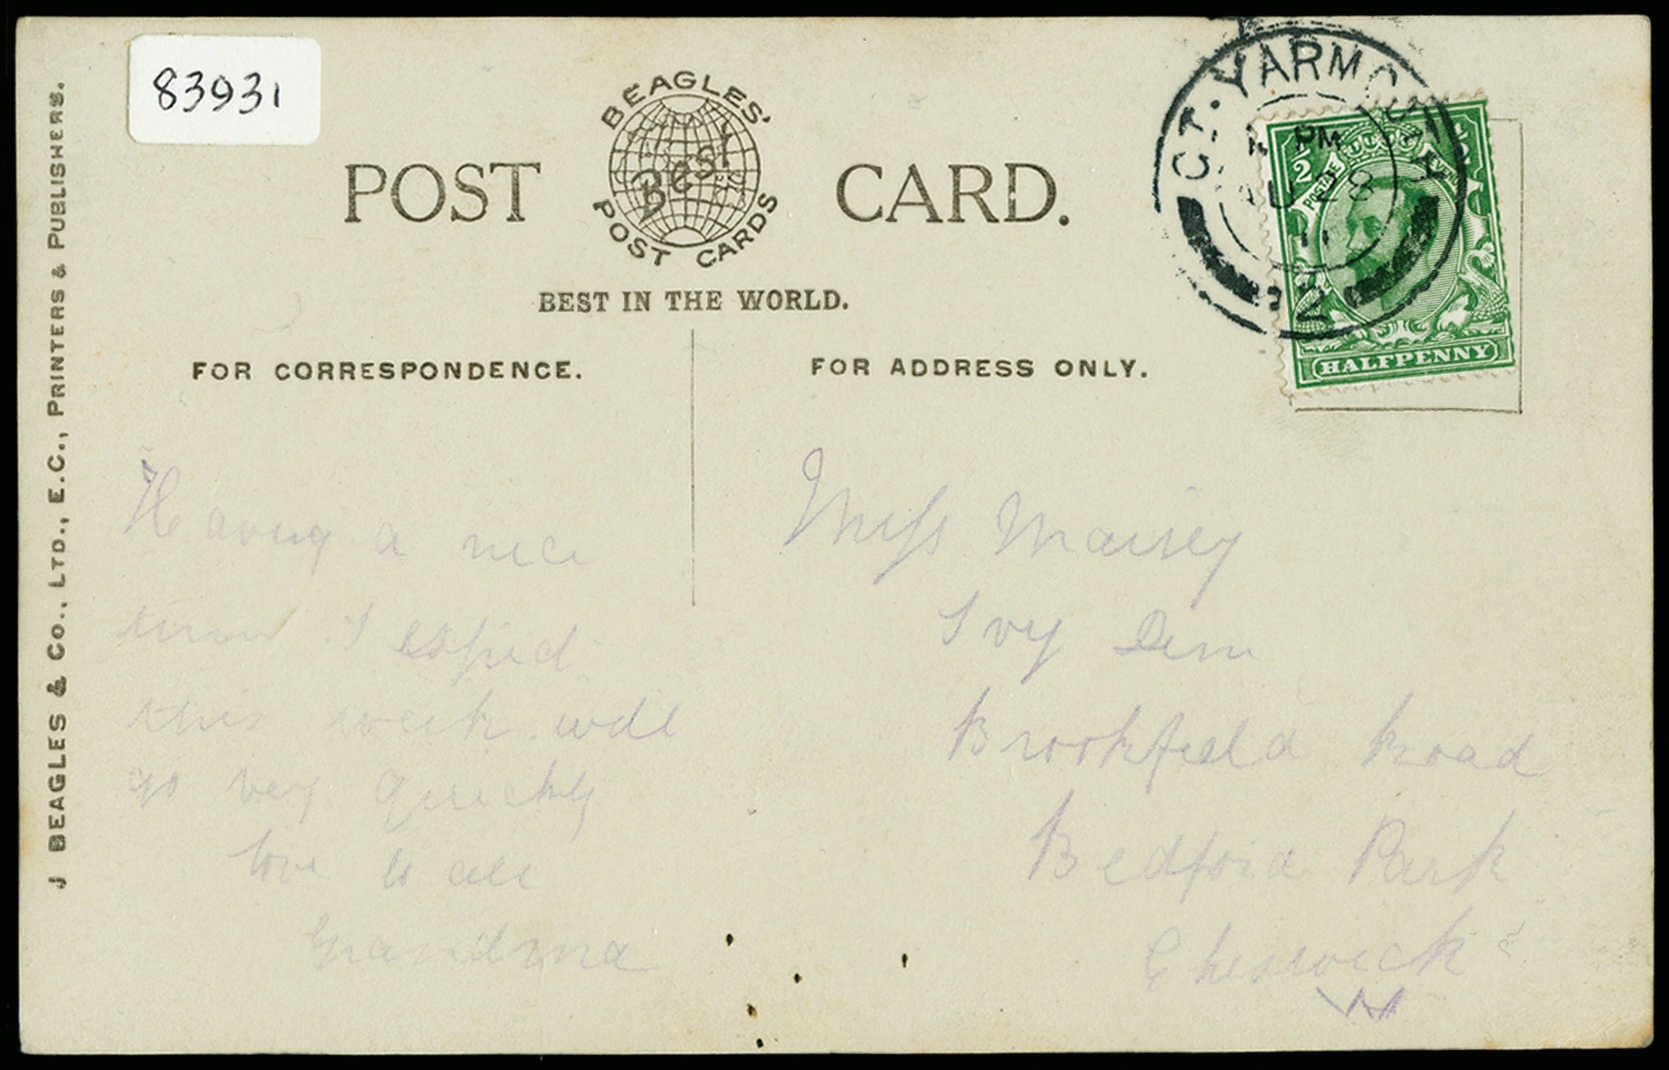 83931
J BEAGLES & CO., LTD., E.C., PRINTERS & PUBLISHERS.
POST CARD.
BEAGLES'
Best
POST CARDS
BEST IN THE WORLD.
FOR CORRESPONDENCE.
FOR ADDRESS ONLY.
GT. YARMOUTH
PM
AU 28
11
2
1/2
POSTAGE
HALFPENNY
Having a nice
time I expect
this week will
go very quickly
love to all
Grandma
Miss Maisey
Ivy
Brookfield Road
Bedford Park
Cheswick
W